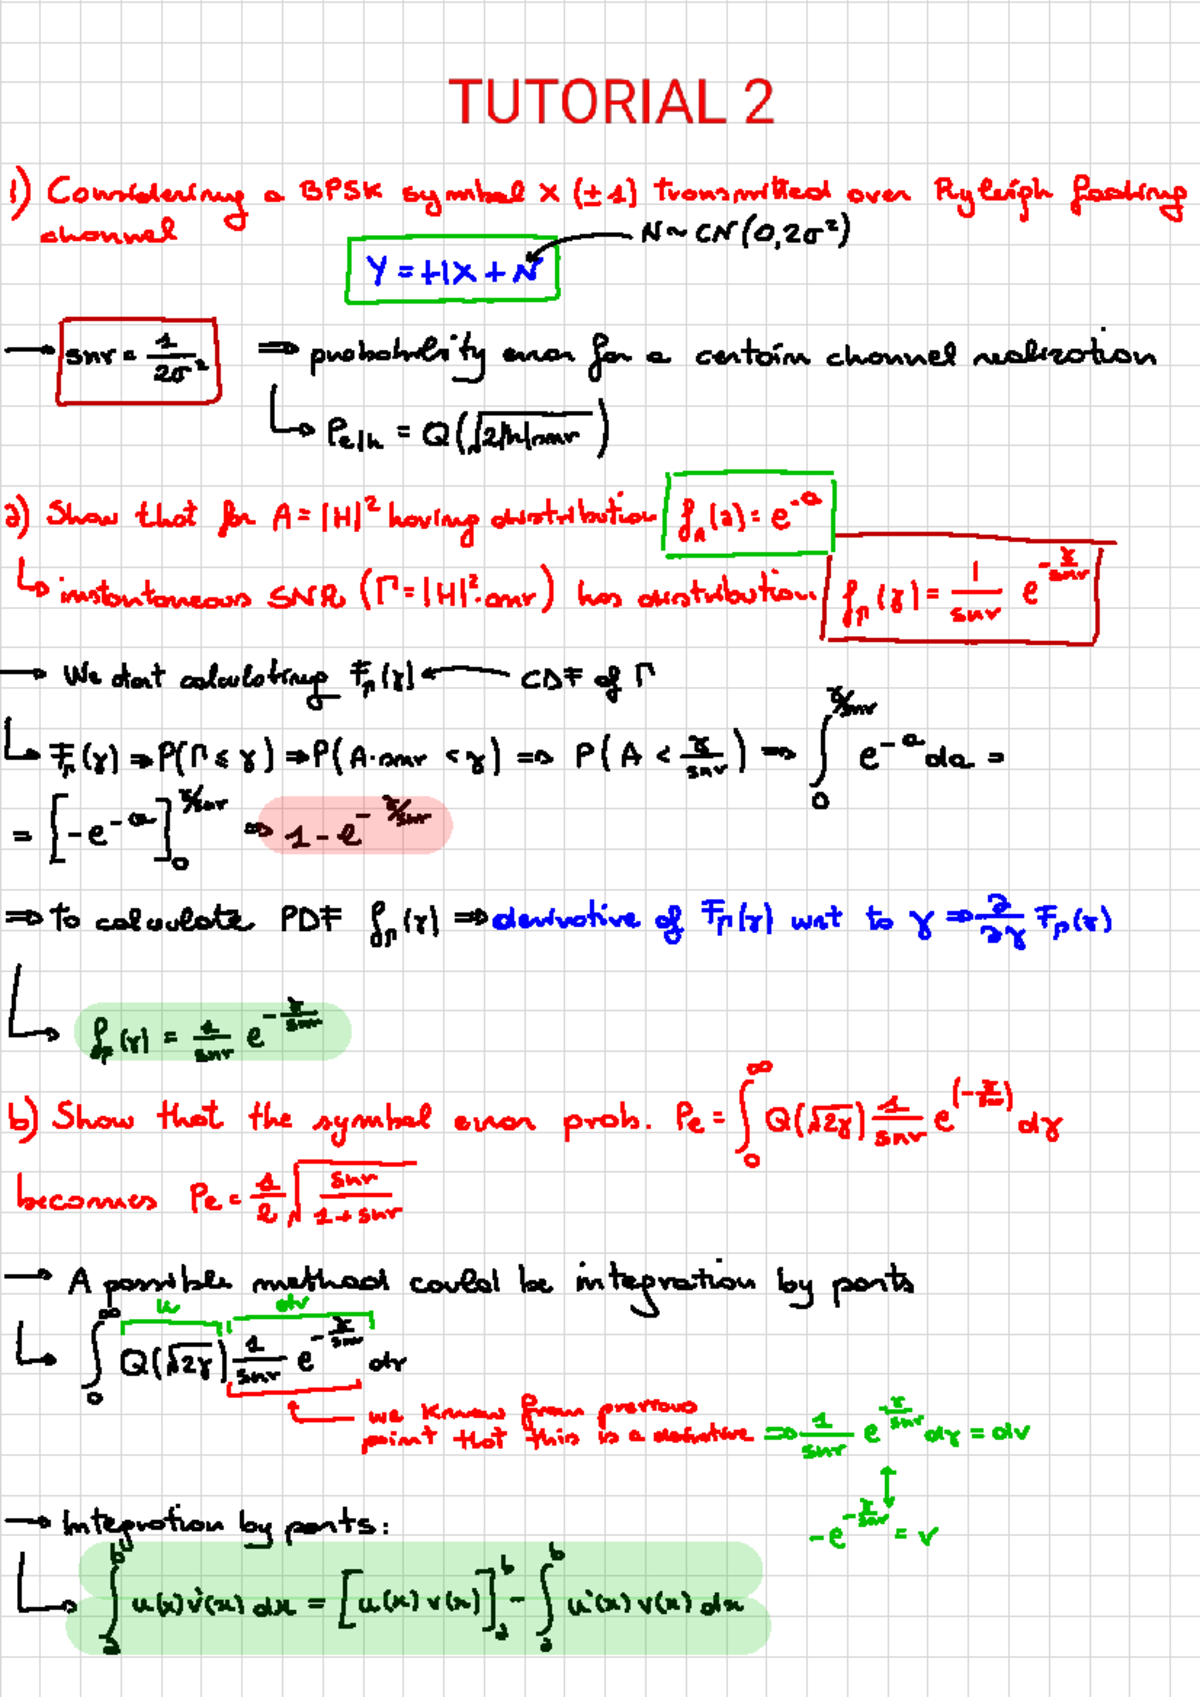 TUTORIAL 2
1) Considering a BPSK symbol X (±1) transmitted over Ryleigh fading
channel
N ~ CN(0,2σ²)
Y = HX + N
→ snr = 1/2σ² ⇒ probability error for a certain channel realization
↳ Pe|h = Q(√2|h|snr)
a) Show that for A = |H|² having distribution fA(a) = e^-a
↳ instantaneous SNR (Γ = |H|²·snr) has distribution fΓ(γ) = 1/snr e^-γ/snr
→ We start calculating FΓ(γ) ← CDF of Γ
↳ FΓ(γ) ⇒ P(Γ ≤ γ) ⇒ P(A·snr < γ) ⇒ P(A < γ/snr) ⇒ ∫₀^γ/snr e^-a da =
= [-e^-a]₀^γ/snr ⇒ 1 - e^-γ/snr
⇒ To calculate PDF fΓ(γ) ⇒ derivative of FΓ(γ) wrt to γ ⇒ ∂/∂γ FΓ(γ)
↳ fΓ(γ) = 1/snr e^-γ/snr
b) Show that the symbol error prob. Pe = ∫₀^∞ Q(√2γ) 1/snr e^(-γ/snr) dγ
becomes Pe = 1/2 √snr/1+snr
→ A possible method could be integration by parts
u dv
↳ ∫₀^∞ Q(√2γ) 1/snr e^-γ/snr dγ
we know from previous
point that this is a derivative ⇒ 1/snr e^-γ/snr dγ = dv
↕
-e^-γ/snr = v
→ Integration by parts:
↳ ∫ₐ^b u(x)v'(x) dx = [u(x)v(x)]ₐ^b - ∫ₐ^b u'(x)v(x) dx